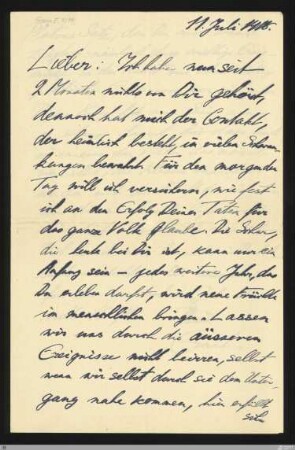 11. Juli
Lieber: Ich habe nun seit
2 Monaten nichts von Dir gehört,
dennoch hat mich der Contakt,
der heimlich besteht, in vielen Schwan-
kungen bewahrt. Für den morgenden
Tag will ich versichern, wie fest
ich an den Erfolg Deiner Taten für
das ganze Volk glaube. Die
die heute bei Dir ist, kann nur ein
Anfang sein – jedes weitere Jahr, das
Du erleben darfst, wird neue Früchte
im menschlichen bringen. Lassen
wir uns durch die äusseren
Ereignisse nicht beirren, selbst
wenn wir selbst durch sie dem Unter-
gang nahe kommen, hin
sich